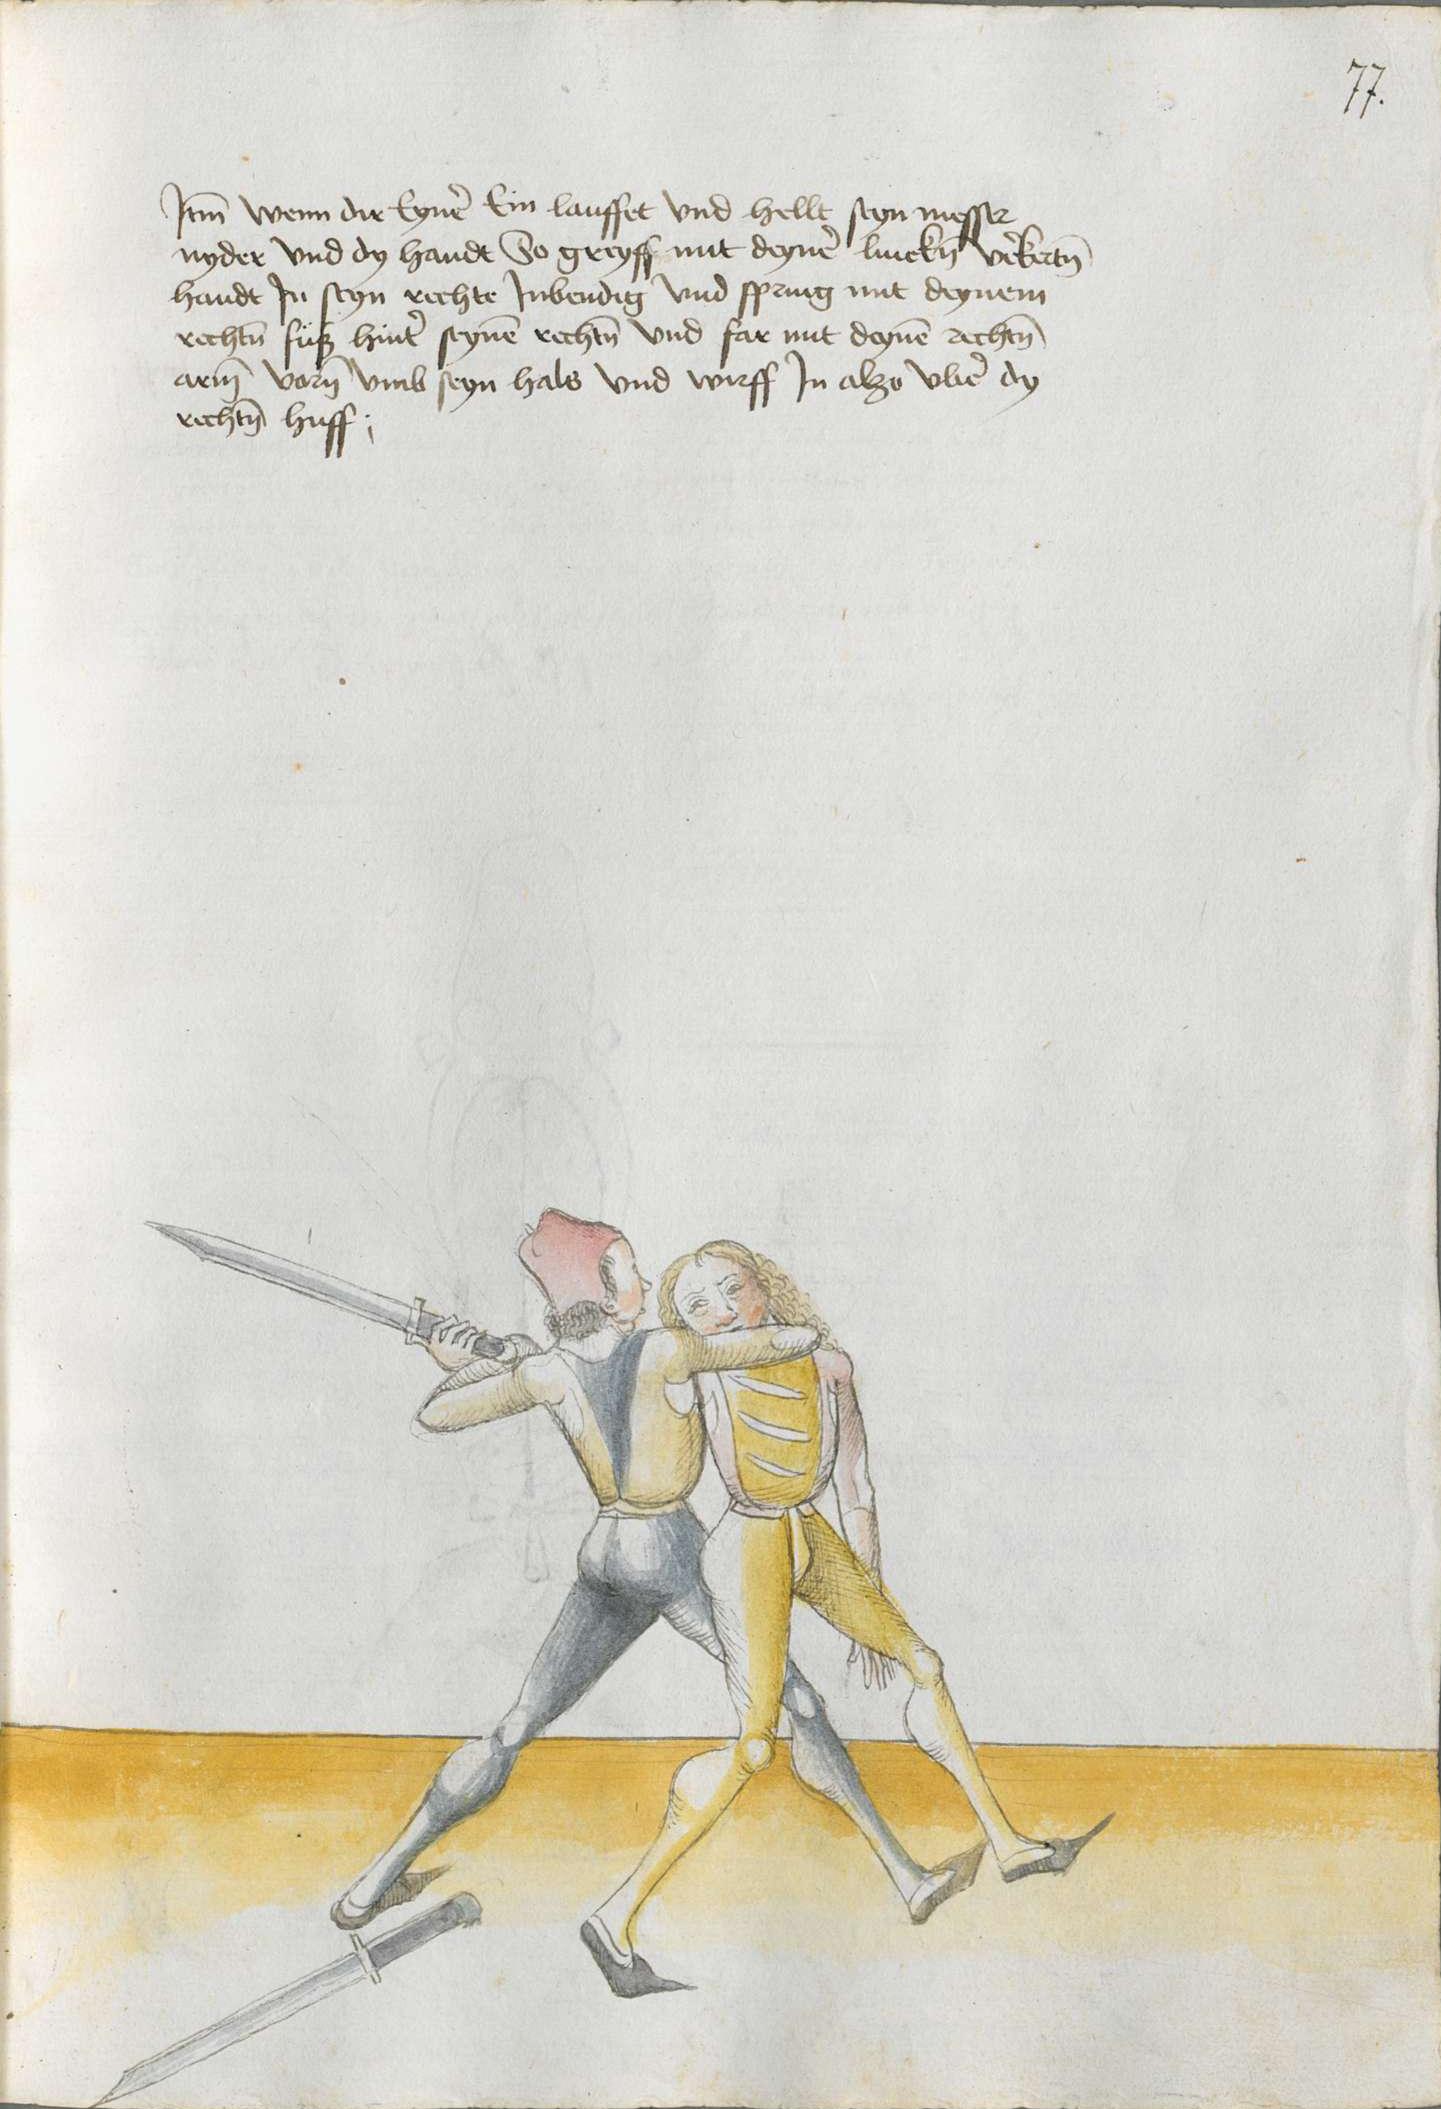 77.
Itm̄ wenn dir Eyne᷑ Ein lauffet vnd hellt seyn messer
nyder vnd dy handt So greyff mit deyne᷑ linckn̄ ve᷑kertn̄
handt In seyn rechte Inbendig vnd spring mit deynem
rechtn̄ fuß hint᷑ seynē rechtn̄ vnd far mit deynē rechtn̄
arm̄ vorn̄ vmb seyn hals vnd wirff In alzo vbe᷑ dy
rechtn̄ huff ;